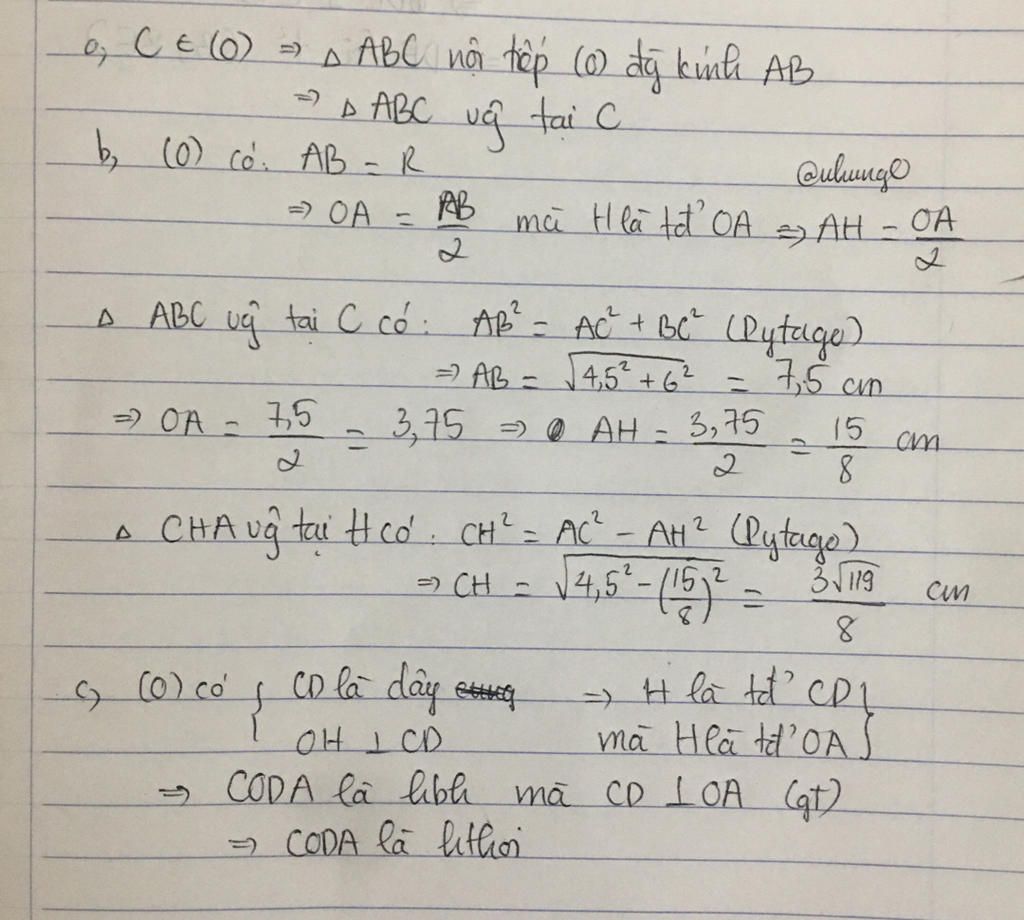 a, C ∈ (O) ⇒ △ ABC nội tiếp (O) đg kính AB
⇒ △ ABC vĝ tại C
b, (O) có: AB = R
@uhung0
⇒ OA = AB/2 mà H là tđ' OA ⇒ AH = OA/2
△ ABC vĝ tại C có: AB² = AC² + BC² (Pytago)
⇒ AB = √(4,5² + 6²) = 7,5 cm
⇒ OA = 7,5/2 = 3,75 ⇒ AH = 3,75/2 = 15/8 cm
△ CHA vĝ tại H có: CH² = AC² - AH² (Pytago)
⇒ CH = √(4,5² - (15/8)²) = 3√119/8 cm
c, (O) có { CD là dây ⇒ H là tđ' CD }
OH ⊥ CD mà H là tđ' OA
⇒ CODA là hbh mà CD ⊥ OA (gt)
⇒ CODA là hthoi